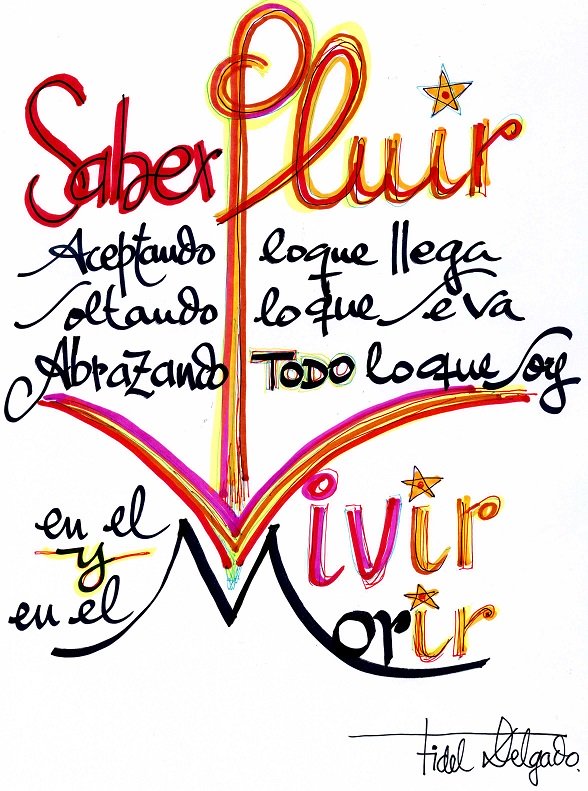 Saber Fluir
Aceptando lo que llega
Soltando lo que se va
Abrazando TODO lo que Soy
en el Vivir
y
en el Morir
Fidel Delgado.